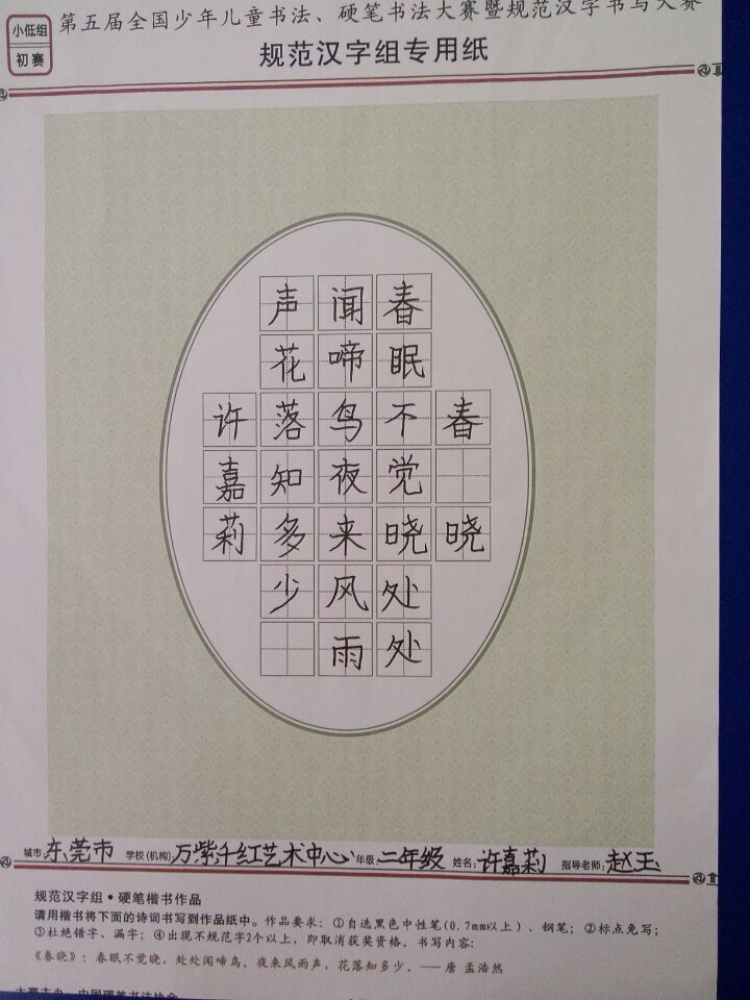 小低组
初赛
第五届全国少年儿童书法、硬笔书法大赛暨规范汉字书写大赛
规范汉字组专用纸
春晓
春眠不觉晓处处
闻啼鸟夜来风雨
声花落知多少
许嘉莉
城市:东莞市 学校(机构)万紫千红艺术中心 年级:二年级 姓名:许嘉莉 指导老师:赵玉
规范汉字组•硬笔楷书作品
请用楷书将下面的诗词书写到作品纸中。作品要求：①自选黑色中性笔(0.7mm以上)、钢笔；②标点免写；
③杜绝错字、漏字；④出现不规范字2个以上，即取消获奖资格。书写内容:
《春晓》：春眠不觉晓，处处闻啼鸟。夜来风雨声，花落知多少。——唐 孟浩然